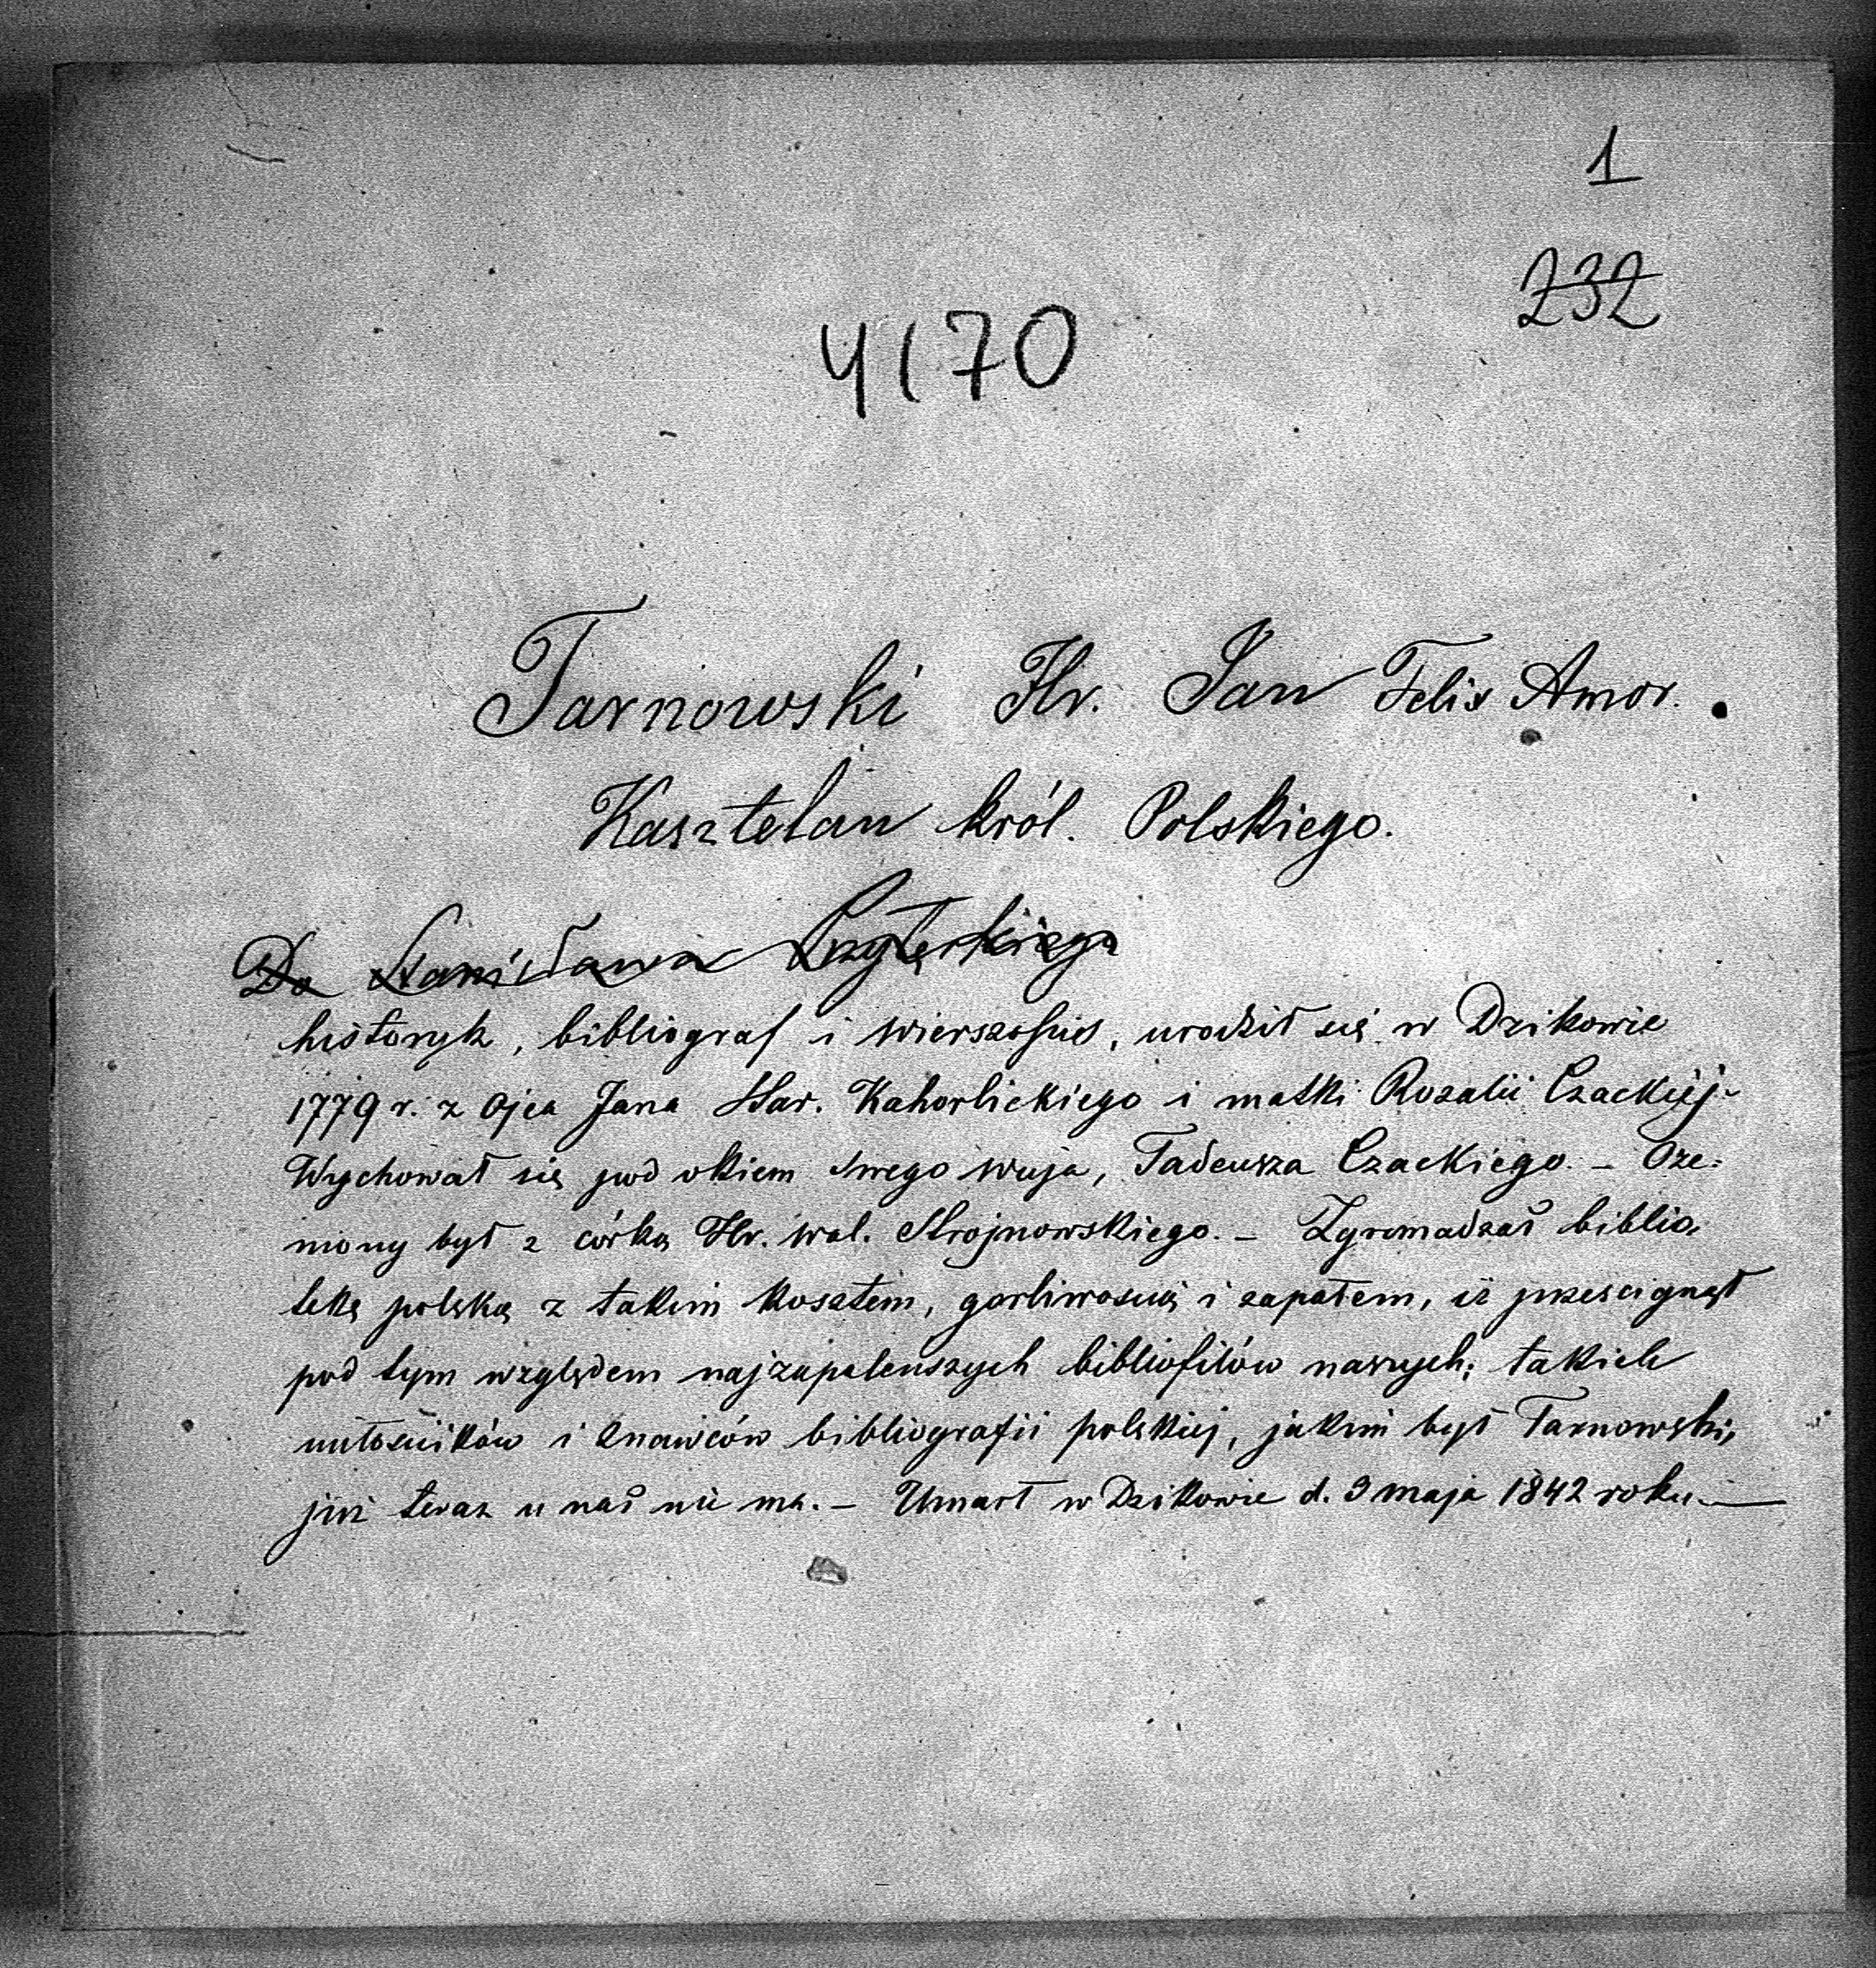 1
232
4170
Tarnowski Hr. Jan Felix Amor.
Kasztelan król. Polskiego.
Do Stanisława Przyłęckiego
historyk, bibliograf i wierszopis, urodził się w Dzikowie
1779 r. z Ojca Jana Star. Kahorlickiego i matki Rozalii Czackiéj-
Wychował się pod okiem swego wuja, Tadeusza Czackiego. - Oże=
niony był z córką Hr. Wal. Strojnowskiego. - Zgromadzał biblio,
tekę polską z takim kosztem, gorliwością i zapałem, iż prześcignął
pod tym względem najzapaleńszych bibliofilów naszych; takich
miłośników i znawców bibliografii polskiej, jakim był Tarnowski,
już teraz u nas nie ma. - Umarł w Dzikowie d. 3 maja 1842 roku. -